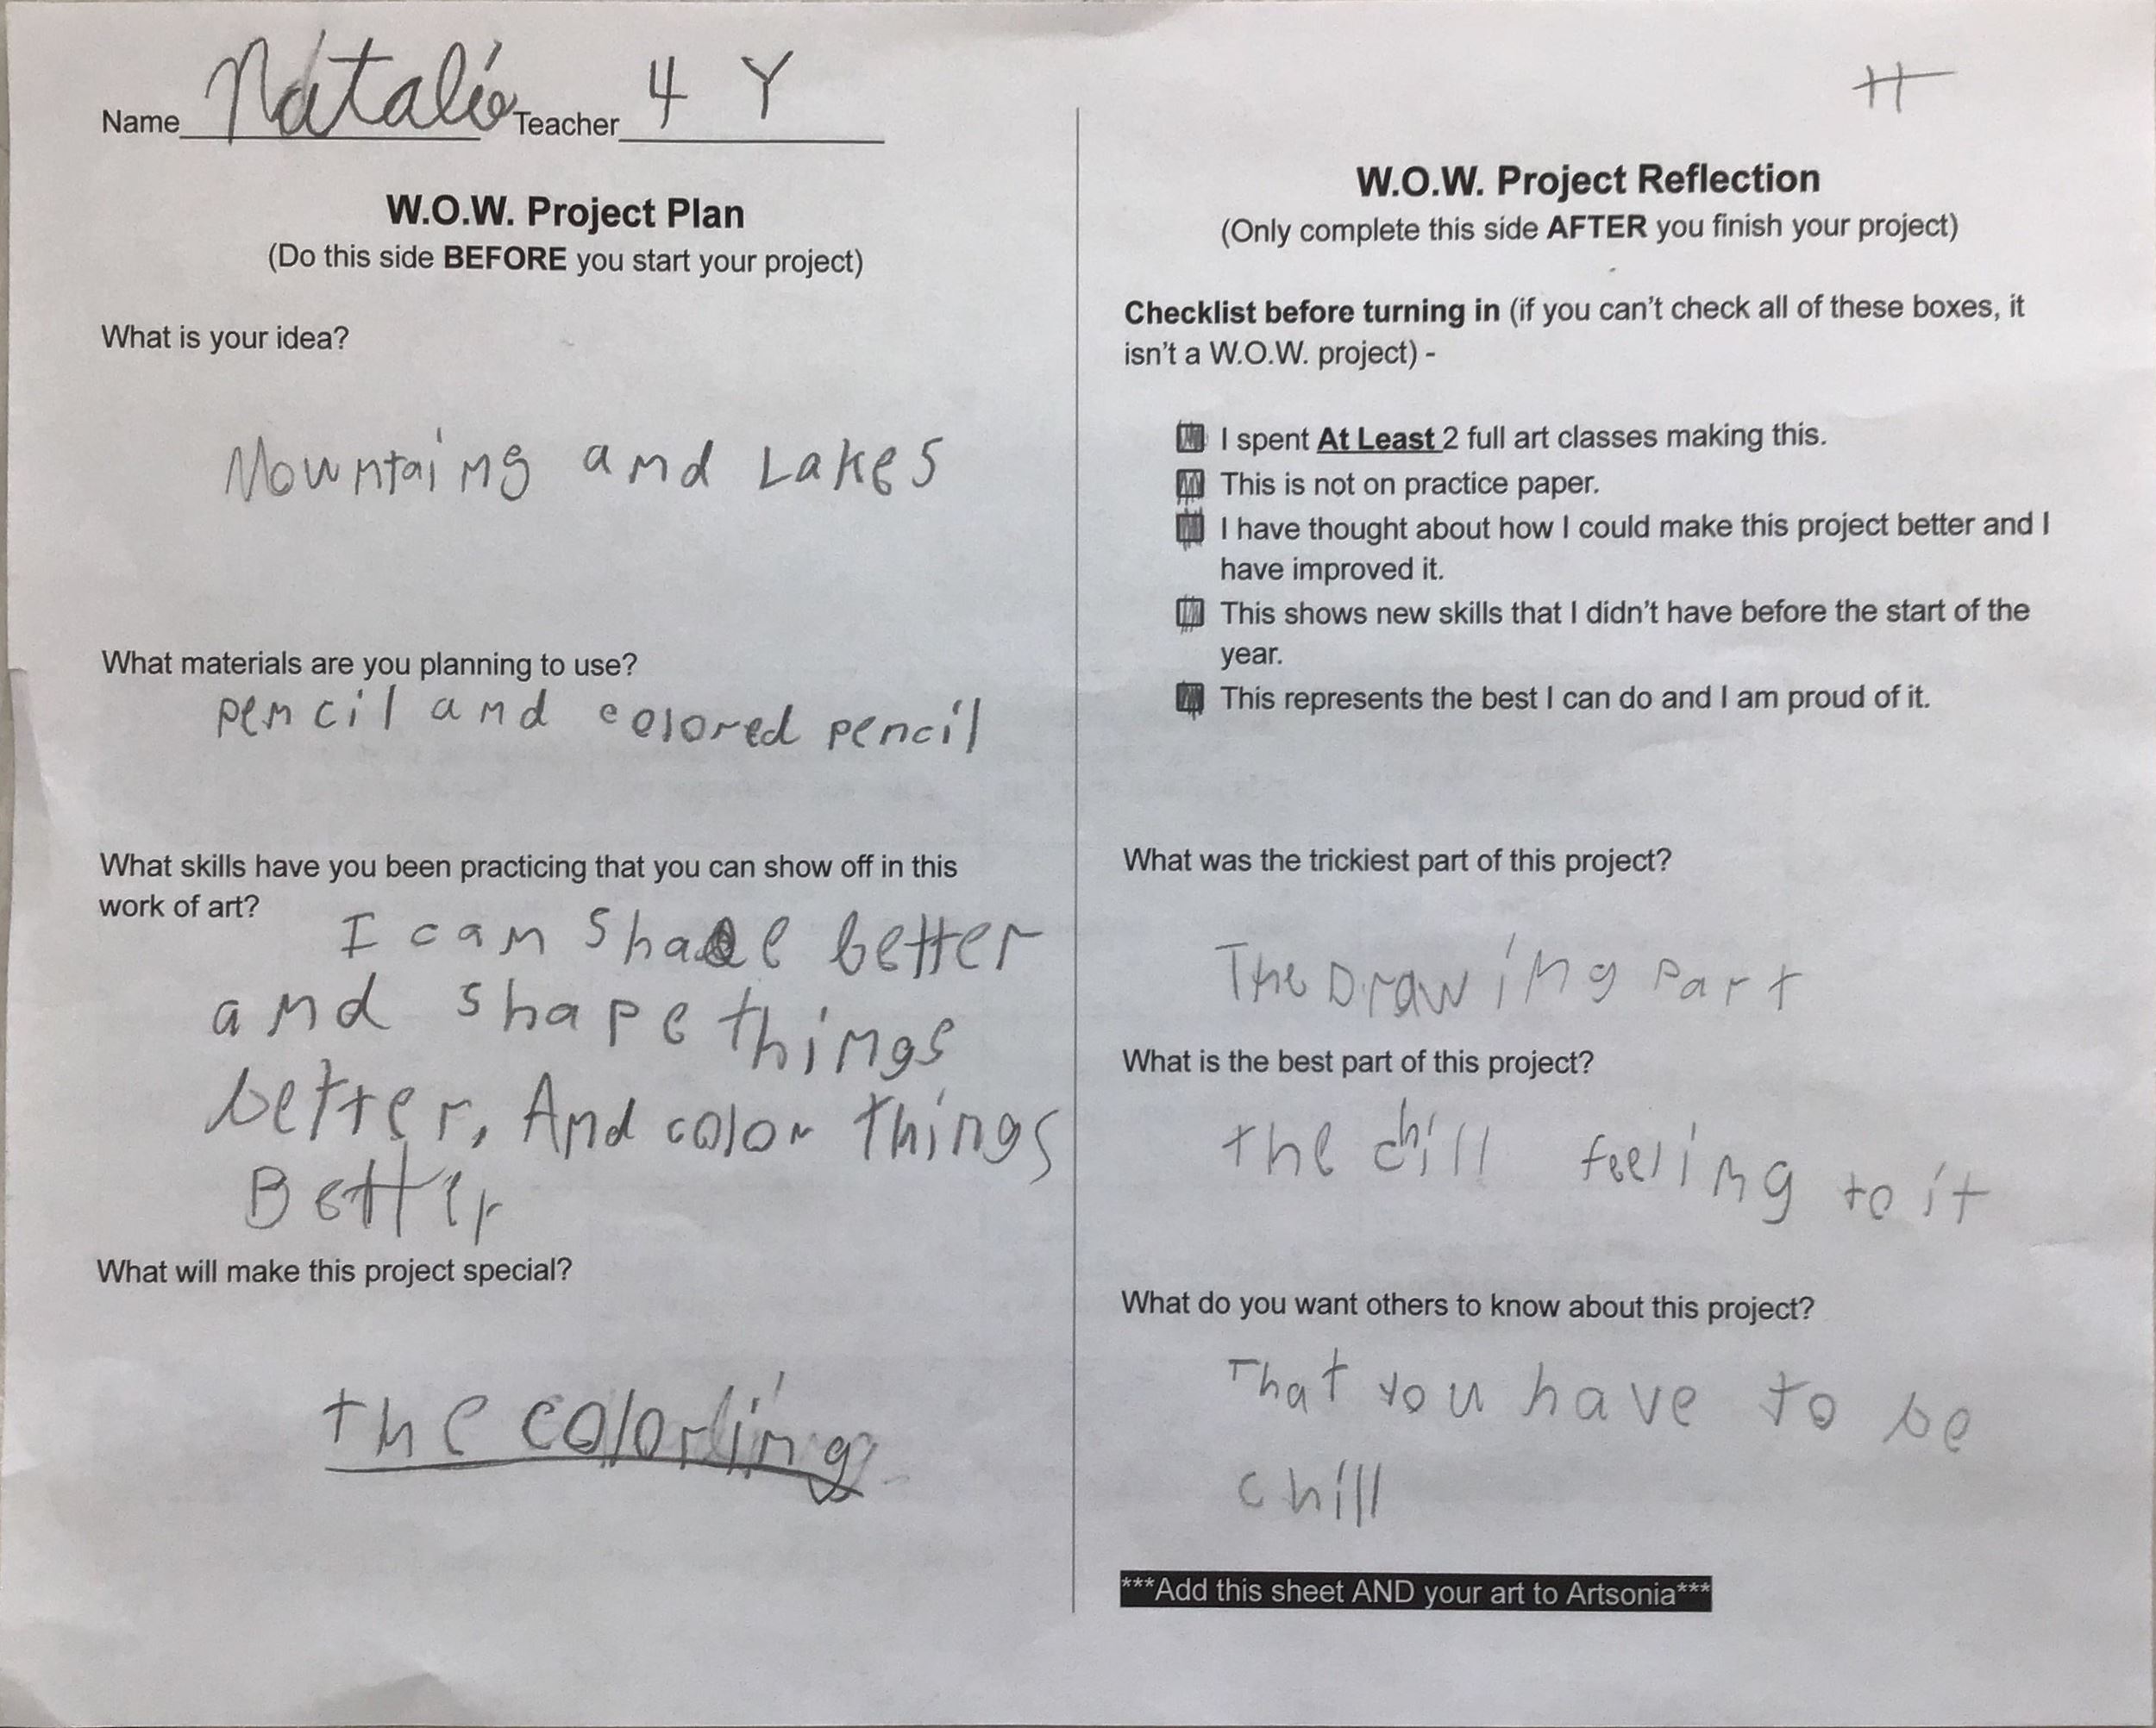 Name Natalie Teacher 4 Y
W.O.W. Project Plan
(Do this side BEFORE you start your project)
What is your idea?
Mountaing and Lakes
What materials are you planning to use?
pencil and colored pencil
What skills have you been practicing that you can show off in this
work of art?
I can shade better
and shape things
better, And color things
Better
What will make this project special?
the coloring
W.O.W. Project Reflection
(Only complete this side AFTER you finish your project)
Checklist before turning in (if you can't check all of these boxes, it
isn't a W.O.W. project) -
I spent At Least 2 full art classes making this.
This is not on practice paper.
I have thought about how I could make this project better and I
have improved it.
This shows new skills that I didn't have before the start of the
year.
This represents the best I can do and I am proud of it.
What was the trickiest part of this project?
The Drawing Part
What is the best part of this project?
the chill feeling to it
What do you want others to know about this project?
That you have to be
chill
***Add this sheet AND your art to Artsonia***